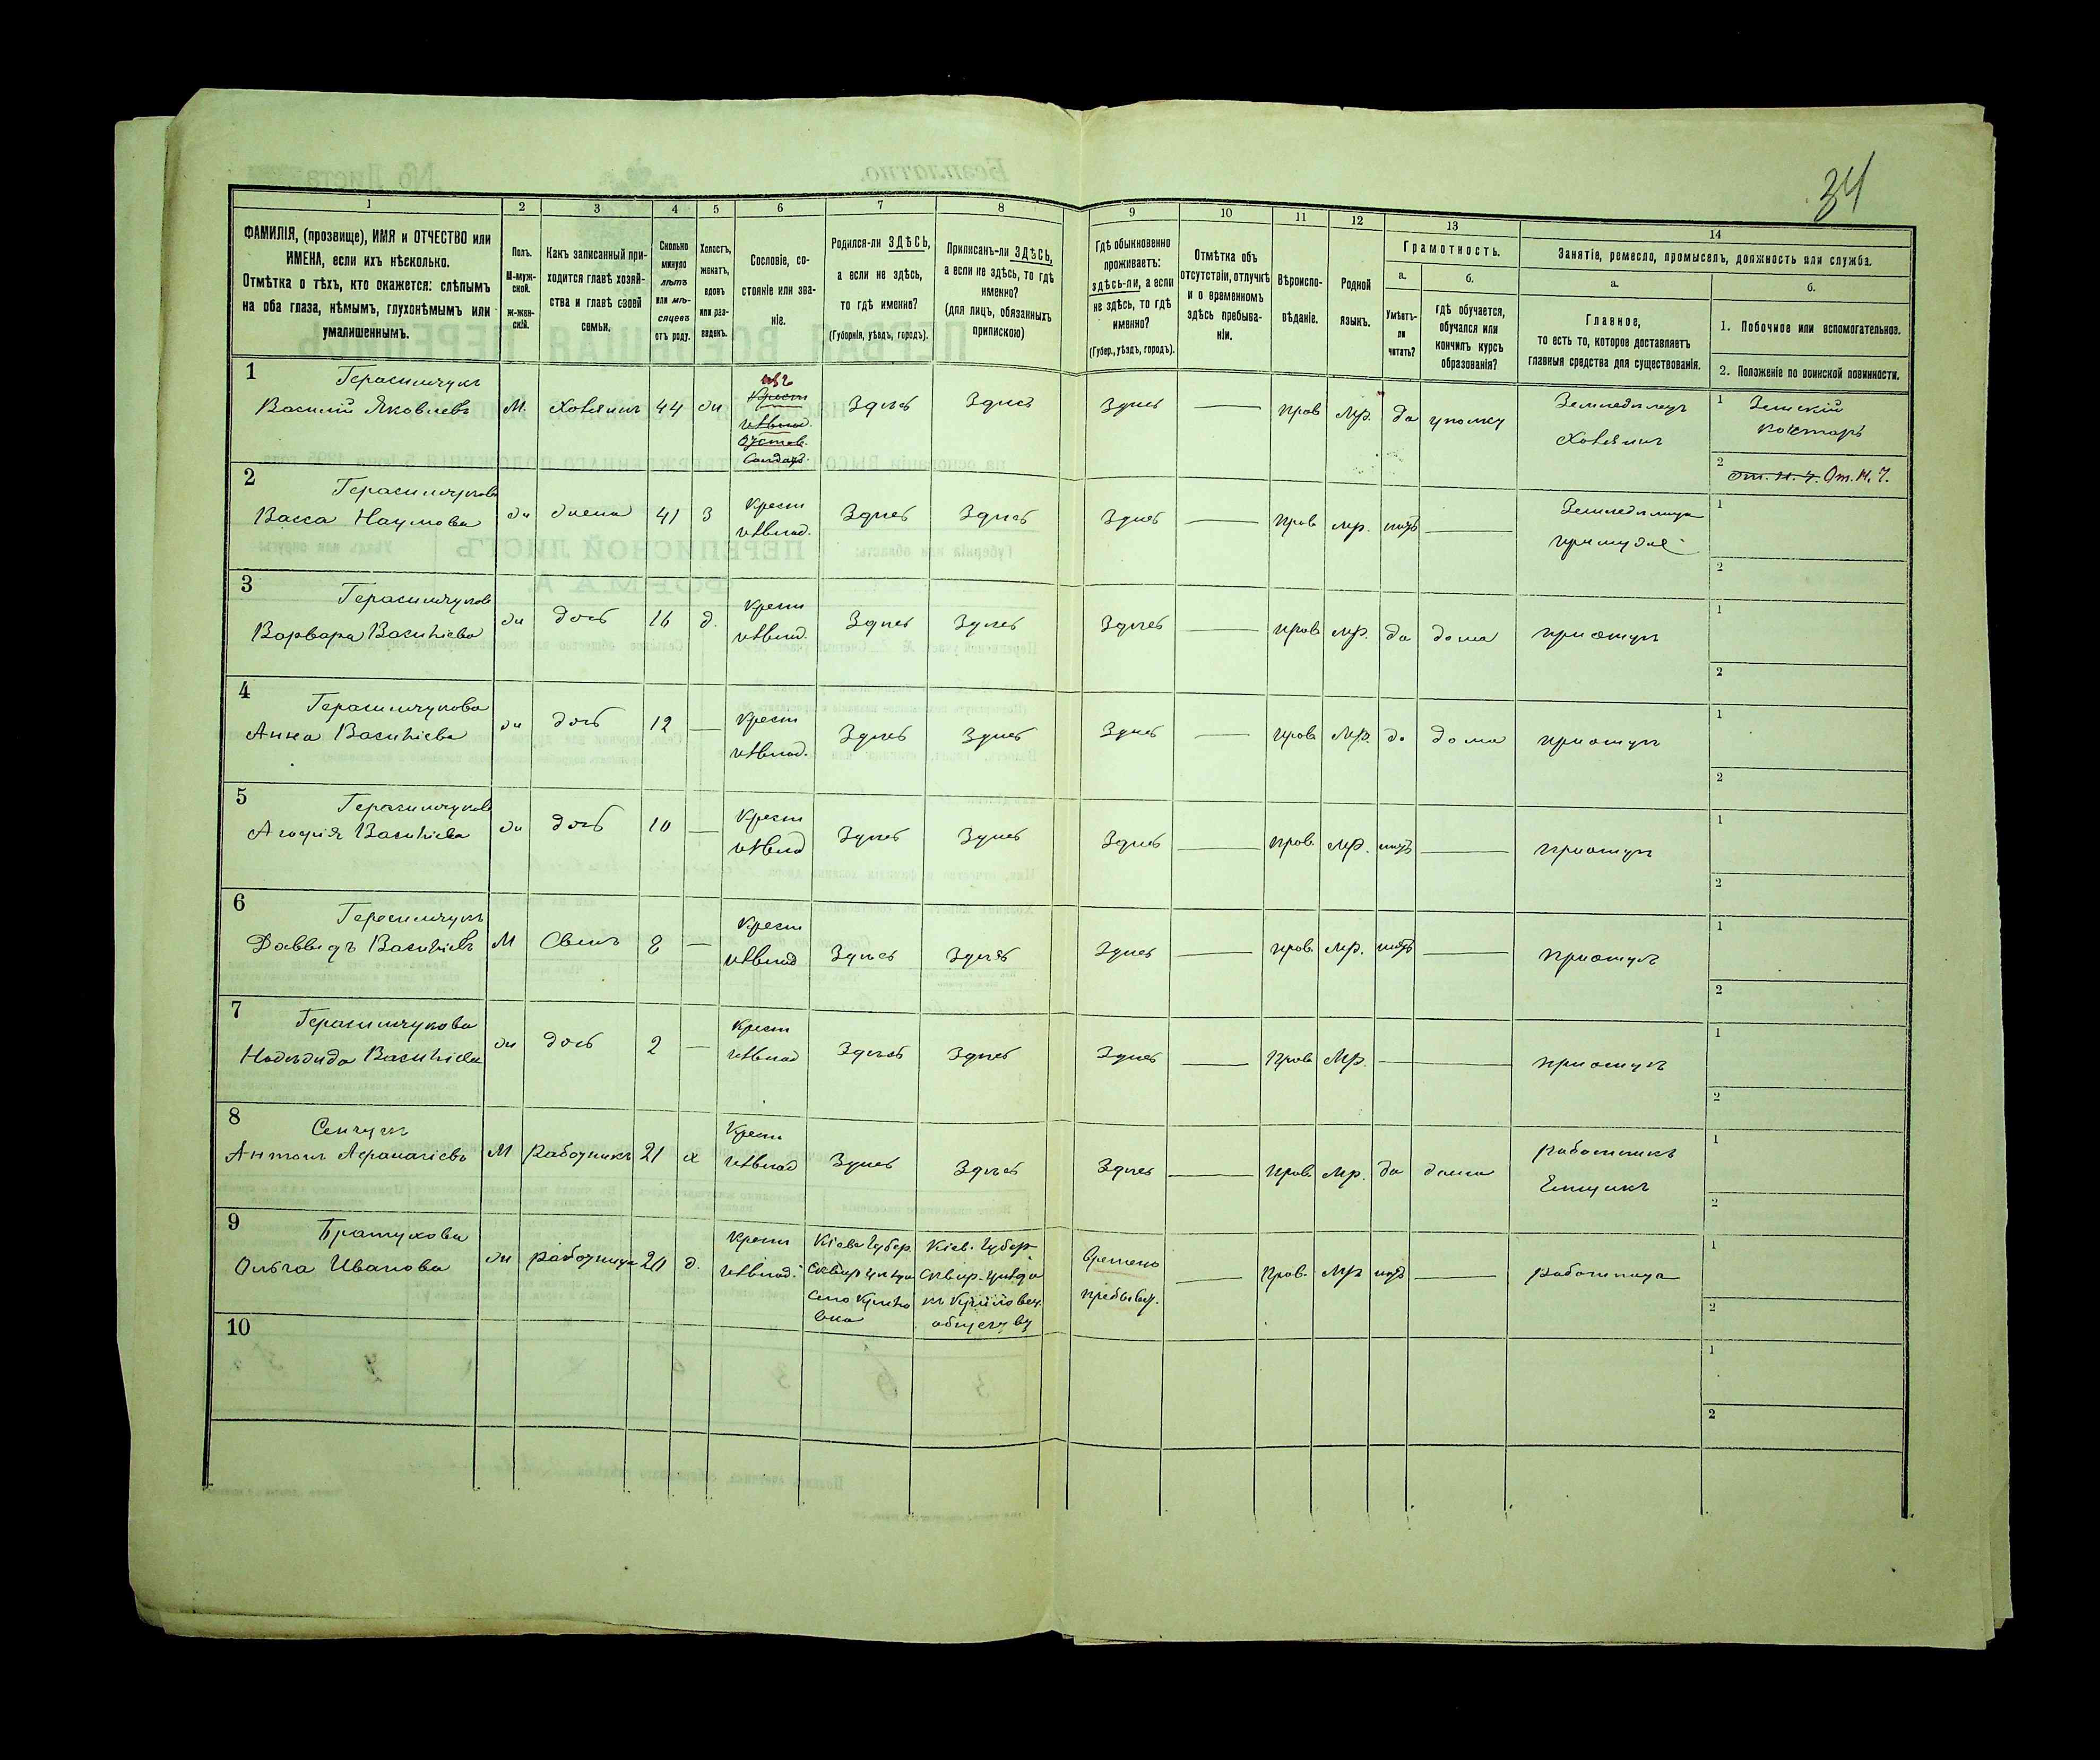 34
1 2 3 4 5 6 7 8 9 10 11 12 13 14
ФАМИЛІЯ, (прозвище), ИМЯ и ОТЧЕСТВО или
ИМЕНА, если ихъ нѣсколько.
Отмѣтка о тѣхъ, кто окажется: слѣпымъ
на оба глаза, нѣмымъ, глухонѣмымъ или
умалишеннымъ.
Полъ.
М-муж-
ской.
Ж-жен-
скій.
Какъ записанный при-
ходится главѣ хозяй-
ства и главѣ своей
семьи.
Сколько
минуло
лѣтъ
или мѣ-
сяцевъ
отъ роду.
Холостъ,
женатъ,
вдовъ
или раз-
веденъ.
Сословіе, со-
стояніе или зва-
ніе.
Родился-ли ЗДѢСЬ,
а если не здѣсь,
то гдѣ именно?
(Губернія, уѣздъ, городъ).
Приписанъ-ли ЗДѢСЬ,
а если не здѣсь, то гдѣ
именно?
(для лицъ, обязанныхъ
припискою)
Гдѣ обыкновенно
проживаетъ:
здѣсь-ли, а если
не здѣсь, то гдѣ
именно?
(Губер., уѣздъ, городъ).
Отмѣтка объ
отсутствіи, отлучкѣ
и о временномъ
здѣсь пребыва-
ніи.
Вѣроиспо-
вѣданіе.
Родной
языкъ.
Грамотность.
а.
Умѣетъ-
ли
читать?
б.
гдѣ обучается,
обучался или
кончилъ курсъ
образованія?
Занятіе, ремесло, промыселъ, должность или служба.
а.
Главное,
то есть то, которое доставляетъ
главныя средства для существованія.
б.
1. Побочное или вспомогательное.
2. Положеніе по воинской повинности.
1 Герасимчукъ
Василій Яковлевъ М. Хозяинъ 44 Крест Здѣсь Здѣсь Здѣсь — прав Мр. да уполку Земледѣлецъ
Хозяинъ
1 Земскій
2 От. Н. Ч. От. Н. Ч.
2 Герасимчукова
Васса Наумова ж жена 41 З Крест Здѣсь Здѣсь Здѣсь — прав мр. нетъ — Земледѣлица
примужѣ
1
2
3 Герасимчуков
Варвара Василіева ж дочь 16 д. Крест Здѣсь Здѣсь Здѣсь — прав мр. да дома приотцѣ
1
2
4 Герасимчукова
Анна Василіева ж дочь 12 — Крест Здѣсь Здѣсь Здѣсь — прав Мр. да дома приотцѣ
1
2
5 Герасимчуков
Агафія Василіева ж дочь 10 — Крест Здѣсь Здѣсь Здѣсь — прав. Мр. нетъ — приотцѣ
1
2
6 Герасимчукъ
Даввидъ Василіевъ М Сынъ 8 — Крест Здѣсь Здѣсь Здѣсь — прав. Мр. нетъ — приотцѣ
1
2
7 Герасимчукова
Надежда Василіева ж дочь 2 — Крест Здѣсь Здѣсь Здѣсь — прав Мр. — — приотцѣ
1
2
8 Сенчукъ
Антонъ Афанасіевъ М Работникъ 21 х Крест Здѣсь Здѣсь Здѣсь — прав Мр. да дома работникъ
Ямщикъ
1
2
9 Братухова
Ольга Иванова ж Работница 20 д. Крест Кіев. Губер. Кіев. Губер. Времено — прав. Мр нетъ — работница
Сквир уѣзда Сквир. уѣзда
пребывц.
село обществу
1
2
10
1
2